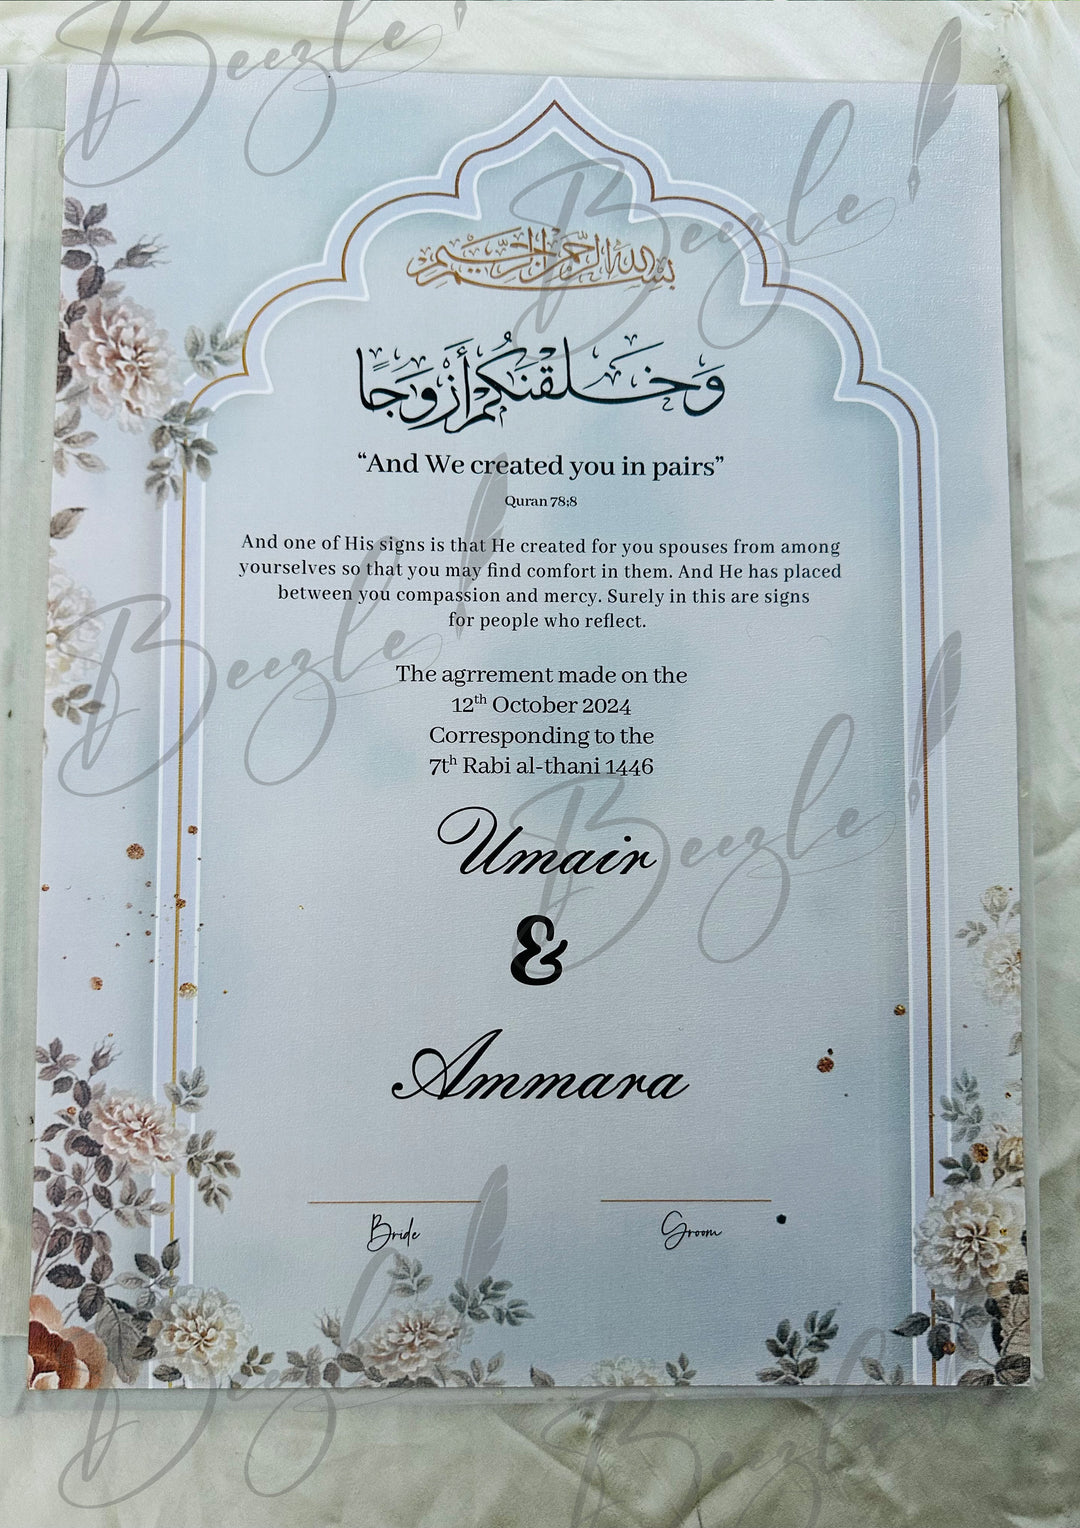 Beezle!
Beezle!
بسم الله الرحمن الرحيم
وَخَلَقْنَكُمْ أَزْوَجًا
“And We created you in pairs”
Quran 78;8
And one of His signs is that He created for you spouses from among
yourselves so that you may find comfort in them. And He has placed
between you compassion and mercy. Surely in this are signs
for people who reflect.
Beezle!
The agrrement made on the
12th October 2024
Corresponding to the
7th Rabi al-thani 1446
Beezle!
Umair
&
Ammara
Bride Groom
Beezle!
Beezle!